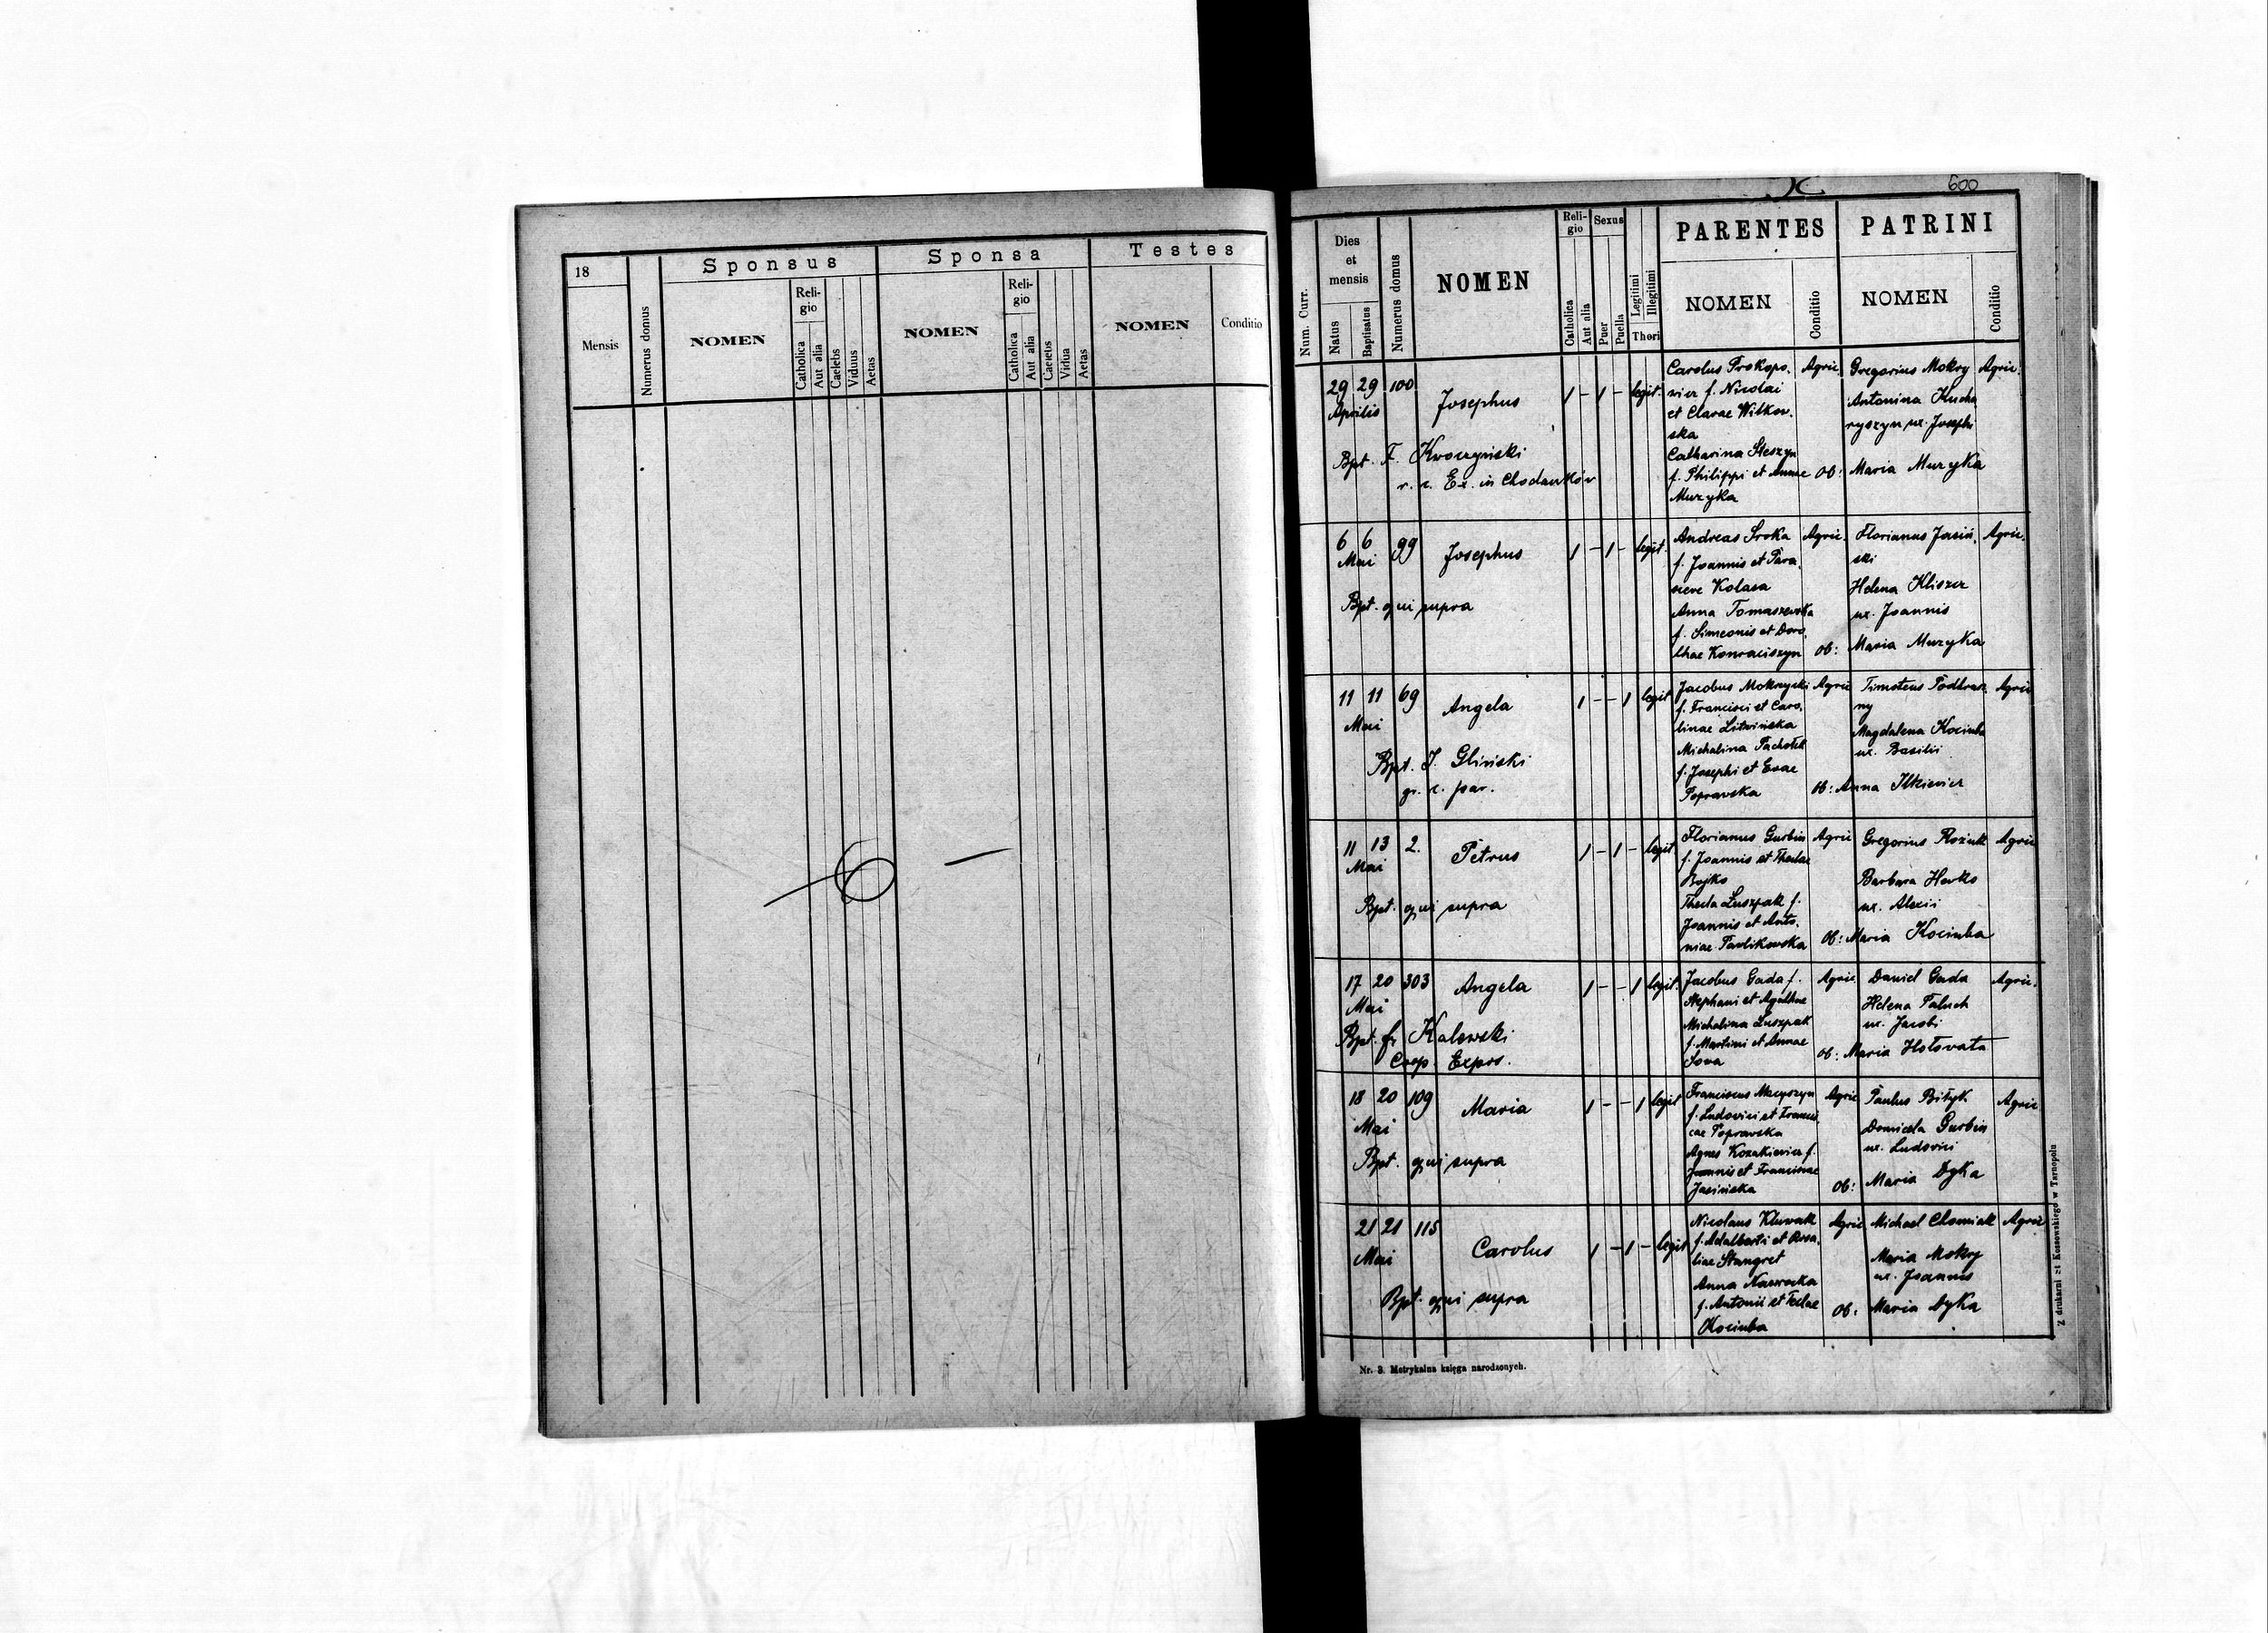 18
Mensis
Numerus domus
Sponsus
NOMEN
Reli-
gio
Catholica
Aut alia
Caelebs
Viduus
Aetas
Sponsa
NOMEN
Reli-
gio
Catholica
Aut alia
Caelebs
Vidua
Aetas
Testes
NOMEN
Conditio
600
Num. Curr.
Dies
et
mensis
Natus
Baptisatus
Numerus domus
NOMEN
Reli-
gio
Catholica
Aut alia
Sexus
Puer
Puella
Legitimi
Illegitimi
Thori
PARENTES
NOMEN
Conditio
PATRINI
NOMEN
Conditio
29 29 100
Aprilis
Josephus
1 - 1 - legit.
Carolus Prokopo.
vicz f. Nicolai
et Clarae Witkow.
ska
Catharina Steszyn
f. Philippi et Annae
Muzyka
Agric.
Gregorius Mokry
Antonina Kucha
ryszyn ux. Josephi
Ob: Maria Muzyka
Agric.
Bpt. F. Kwoczyński
r. l. Ex. in Chodaczków
6 6 99
Mai
Josephus
1 - 1 - legit.
Andreas Sroka
f. Joannis et Para.
sceve Kolasa
Anna Tomaszewska
f. Simeonis et Doro.
thae Konraciszyn
Agric.
Florianus Jasiń.
ski
Helena Kliszcz
ux. Joannis
Ob: Maria Muzyka
Agric.
Bpt. qui supra
11 11 69
Mai
Angela
1 - - 1 legit
Jacobus Mokrzycki
f. Francisci et Caro.
linae Litwińska
Michalina Pachołek
f. Josephi et Evae
Poprawska
Agric
ny
Magdalena Kociuba
ux. Basilii
Ob: Anna Ilkiewicz
Agric
Bpt. J. Gliński
gr. c. par.
11 13 2.
Mai
Petrus
1 - 1 - legit
Florianus Gurbin
f. Joannis et Theclae
Bojko
Thecla Luszpak f.
Joannis et Anto.
niae Pavlikowska
Agric
Gregorius Roziuk
Barbara Hevko
ux. Alexii
Ob: Maria Kociuba
Agric
Bpt. qui supra
17 20 303
Mai
Angela
1 - - 1 legit.
Jacobus Gada f.
Stephani et Agathae
Michalina Luszpak
f. Martini et Annae
Sowa
Agric.
Daniel Gada
Helena Paluch
ux. Jacobi
Ob: Maria Hołovata
Agric.
Bpt. fr. Kalewski
Coop. Expos.
18 20 109
Mai
Maria
1 - - 1 legit
f. Ludovici et Francis
cae Poprawska
Agnes Kozakiewicz f.
Joannis et Franciscae
Jasińska
Agric
Paulus Biłyk
Domicela Gurbin
ux. Ludovici
Ob: Maria Dyka
Agric
Bpt. qui supra
21 21 115
Mai
Carolus
1 - 1 - legit
Nicolaus Kluwak
f. Adalberti et Rosa.
liae Stangret
Anna Nawrocka
f. Antonii et Teclae
Kociuba
Agric
Michael Chomiak
Maria Mokry
ux. Joannis
Ob: Maria Dyka
Agric
Bpt. qui supra
Nr. 3. Metrykalna księga narodzonych.